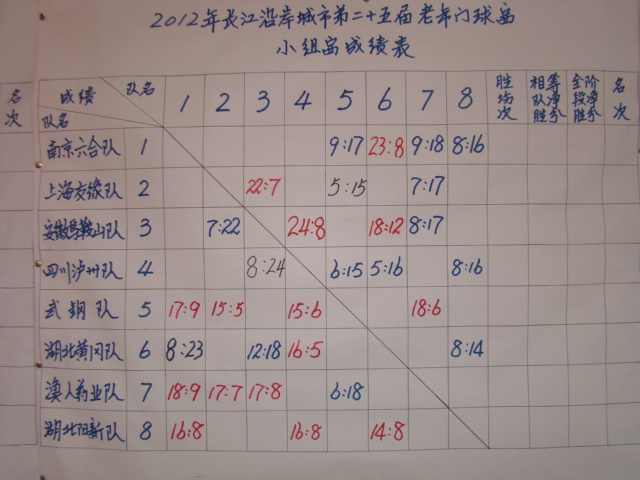 2012年长江沿岸城市第二十五届老年门球赛
小组赛成绩表
名次 成绩 队名 队名 1 2 3 4 5 6 7 8 胜场次 相等队净胜分 全阶段净胜分 名次
南京六合队 1 9:17 23:8 9:18 8:16
上海友缘队 2 22:7 5:15 7:17
安徽马鞍山队 3 7:22 24:8 18:12 8:17
四川泸州队 4 8:24 6:15 5:16 8:16
武钢队 5 17:9 15:5 15:6 18:6
湖北黄冈队 6 8:23 12:18 16:5 8:14
澳人药业队 7 18:9 17:7 17:8 6:18
湖北阳新队 8 16:8 16:8 14:8